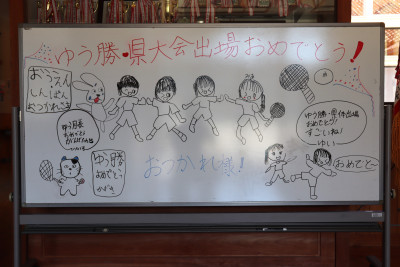 ゆう勝・県大会出場おめでとう!
おうえん
しんぱん
おつかれさま
ゆう勝
おめでとう
ゆう勝
おめでとう
おつかれ様!
ゆう勝・県体出場
おめでとう!
すごいね!
ゆい
おめでとー